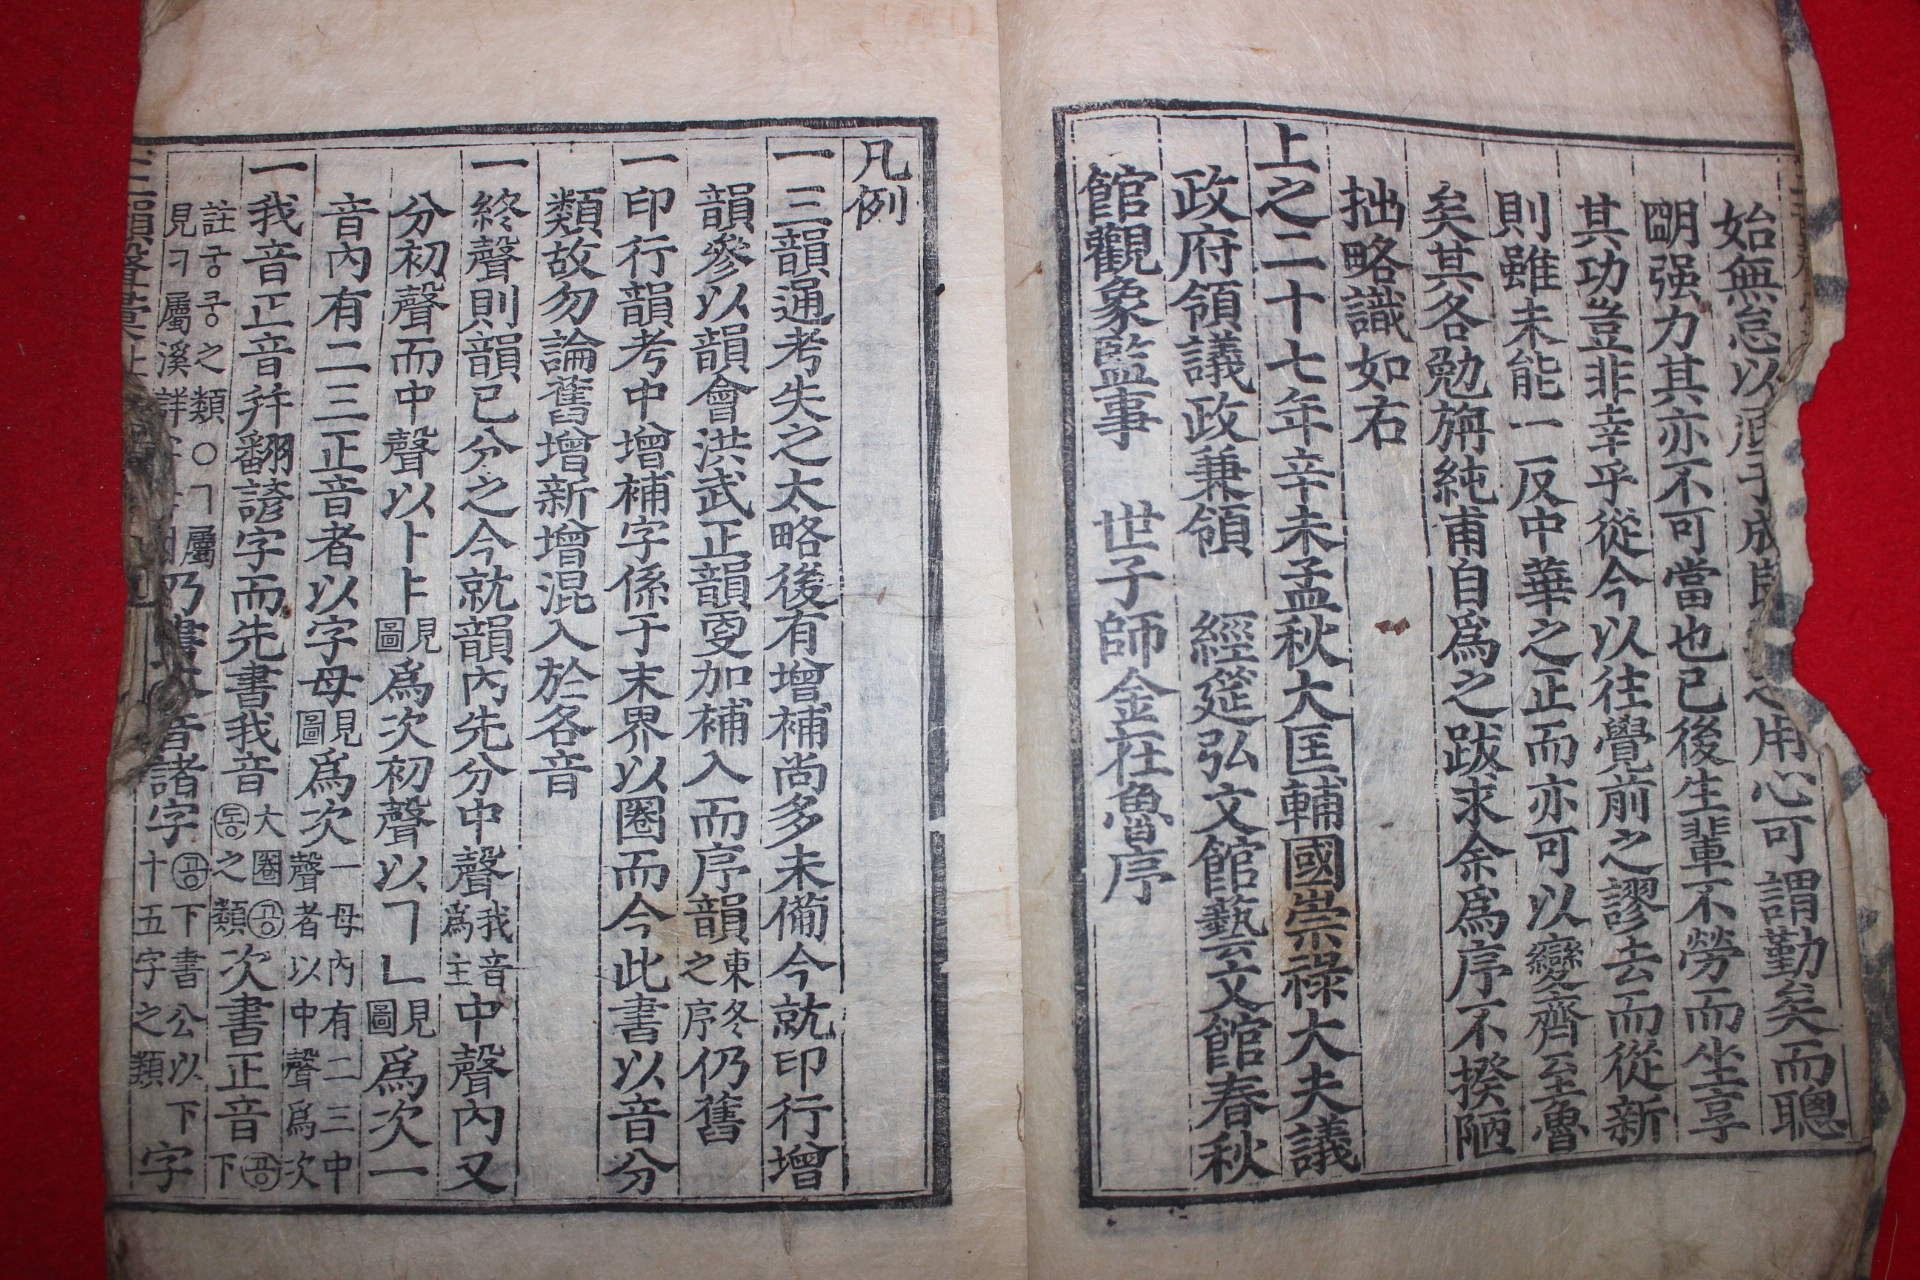 始無怠以底于成
用心可謂勤矣而聰
明强力其亦不可當也已後生輩不勞而坐享
其功豈非幸乎從今以往覺前之謬去而從新
則雖未能一反中華之正而亦可以變齊至魯
矣其各勉旃純甫自爲之跋求余爲序不揆陋
拙略識如右
上之二十七年辛未孟秋大匡輔國崇祿大夫議
政府領議政兼領 經筵弘文館藝文館春秋
館觀象監事 世子師金在魯序
凡例
一三韻通考失之太略後有增補尚多未備今就印行增
韻參以韻會洪武正韻更加補入而序韻東冬之序仍舊
一印行韻考中增補字係于末界以圈而今此書以音分
類故勿論舊增新增混入於各音
一終聲則韻已分之今就韻內先分中聲我音爲主中聲內又
分初聲而中聲以ㅏㅑ見圖爲次初聲以ㄱㄴ見圖爲次一
音內有二三正音者以字母見圖爲次一母內有二三中聲者以中聲爲次
一我音正音幷翻諺字而先書我音大圈공동之類次書正音공下
註궁쿵之類ㅇㄱ屬見ㅋ屬溪詳
乃書
音諸字공下書公以下十五字之類字
三韻聲彙上